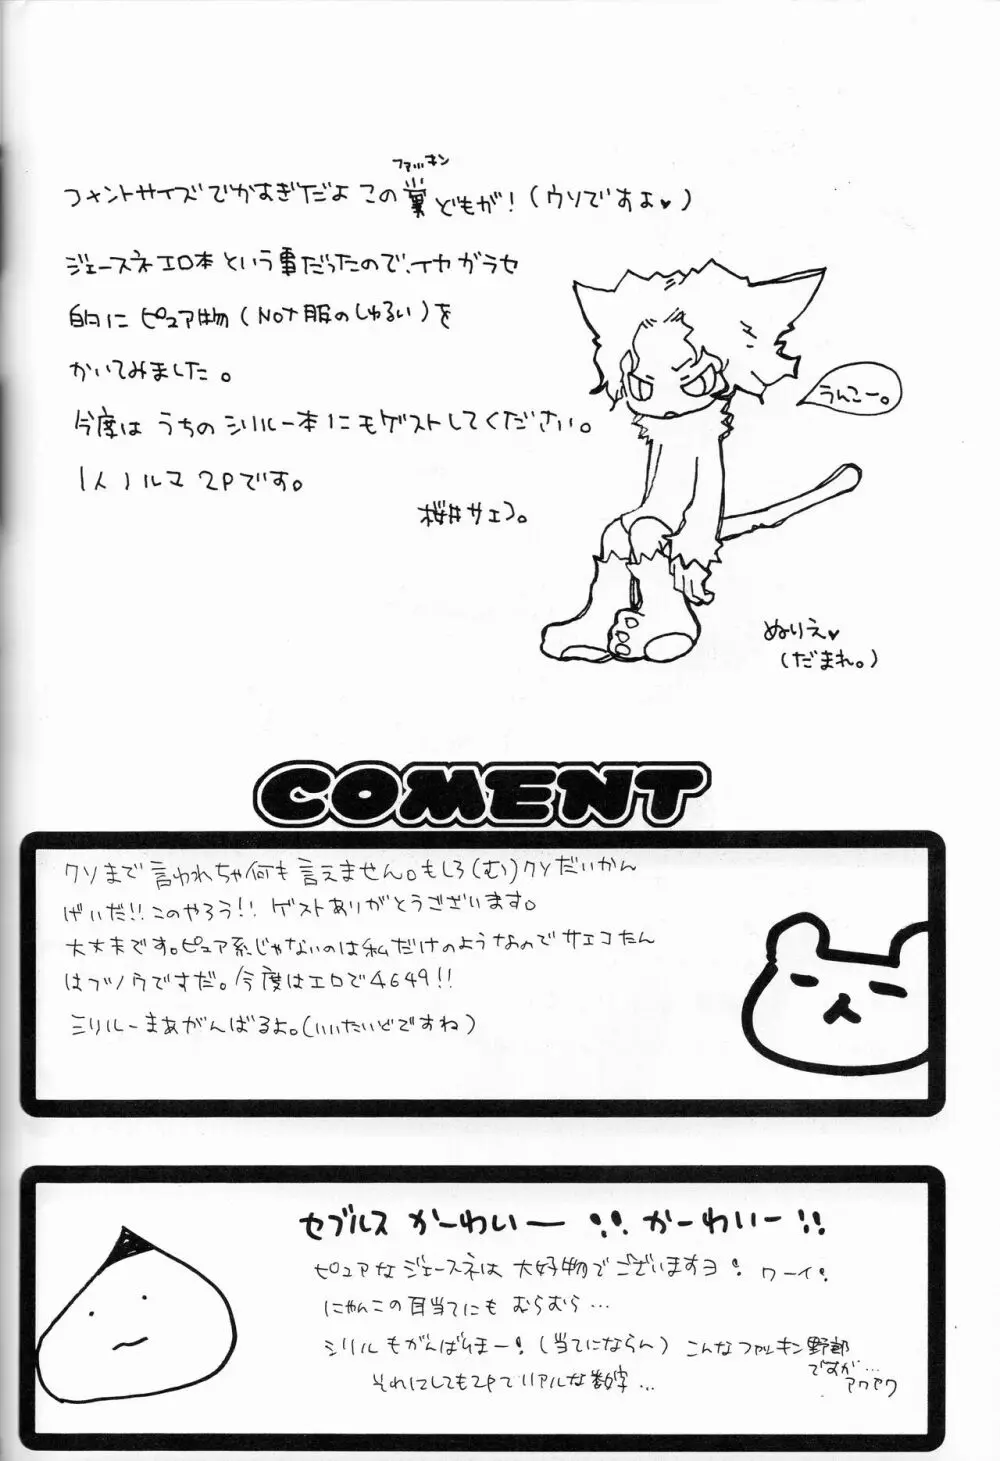 ファッキン
フォントサイズでかすぎだよ この糞どもが!(ウソですよ♥)
ジェースネエロ本という事だったので、イヤガラセ
的に ピュア物(NOT服のしゅるい)を
かいてみました。
今度は うちの シリルー本にもゲストしてください。
1人ノルマ 2Pです。
桜井サエコ。
うんこー。
ぬりえ♥
(だまれ。)
COMENT
クソまで言われちゃ何も言えません。もしろ(む)クソだいかん
げいだ!!このやろう!! ゲストありがとうございます。
大丈夫です。ピュア系じゃないのは私だけのようなのでサエコたん
はブノウですだ。今度はエロで4649!!
シリルーまあがんばるよ。(いいたいどですね)
セブルス かーわいー!! かーわいー!!
ピュアなジェースネは 大好物でございますヨ! ワーイ!
にゃんこの耳当てにも むらむら…
シリルもがんばりまー!(当てにならん) こんなファッキン野郎
ですが…
アワアワ
それにしても2Pでリアルな数字…